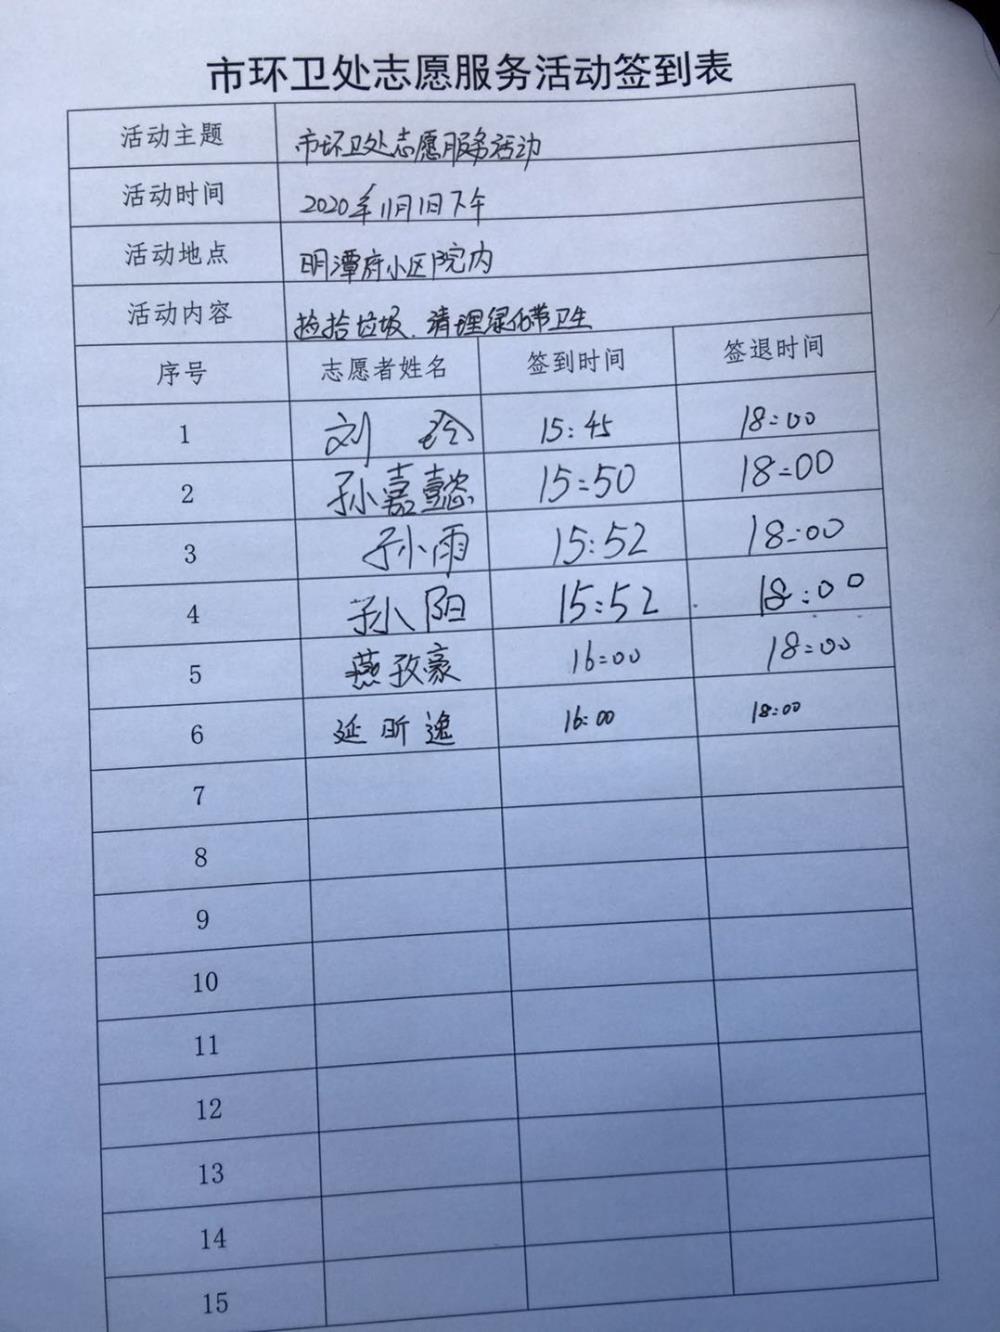 市环卫处志愿服务活动签到表
活动主题 市环卫处志愿服务活动
活动时间 2020年11月1日下午
活动地点 明潭府小区院内
活动内容 捡拾垃圾、清理绿化带卫生
序号 志愿者姓名 签到时间 签退时间
1 刘 玲 15:45 18:00
2 孙嘉懿 15:50 18:00
3 孙雨 15:52 18:00
4 孙阳 15:52 18:00
5 燕孜豪 16:00 18:00
6 延昕逸 16:00 18:00
7
8
9
10
11
12
13
14
15